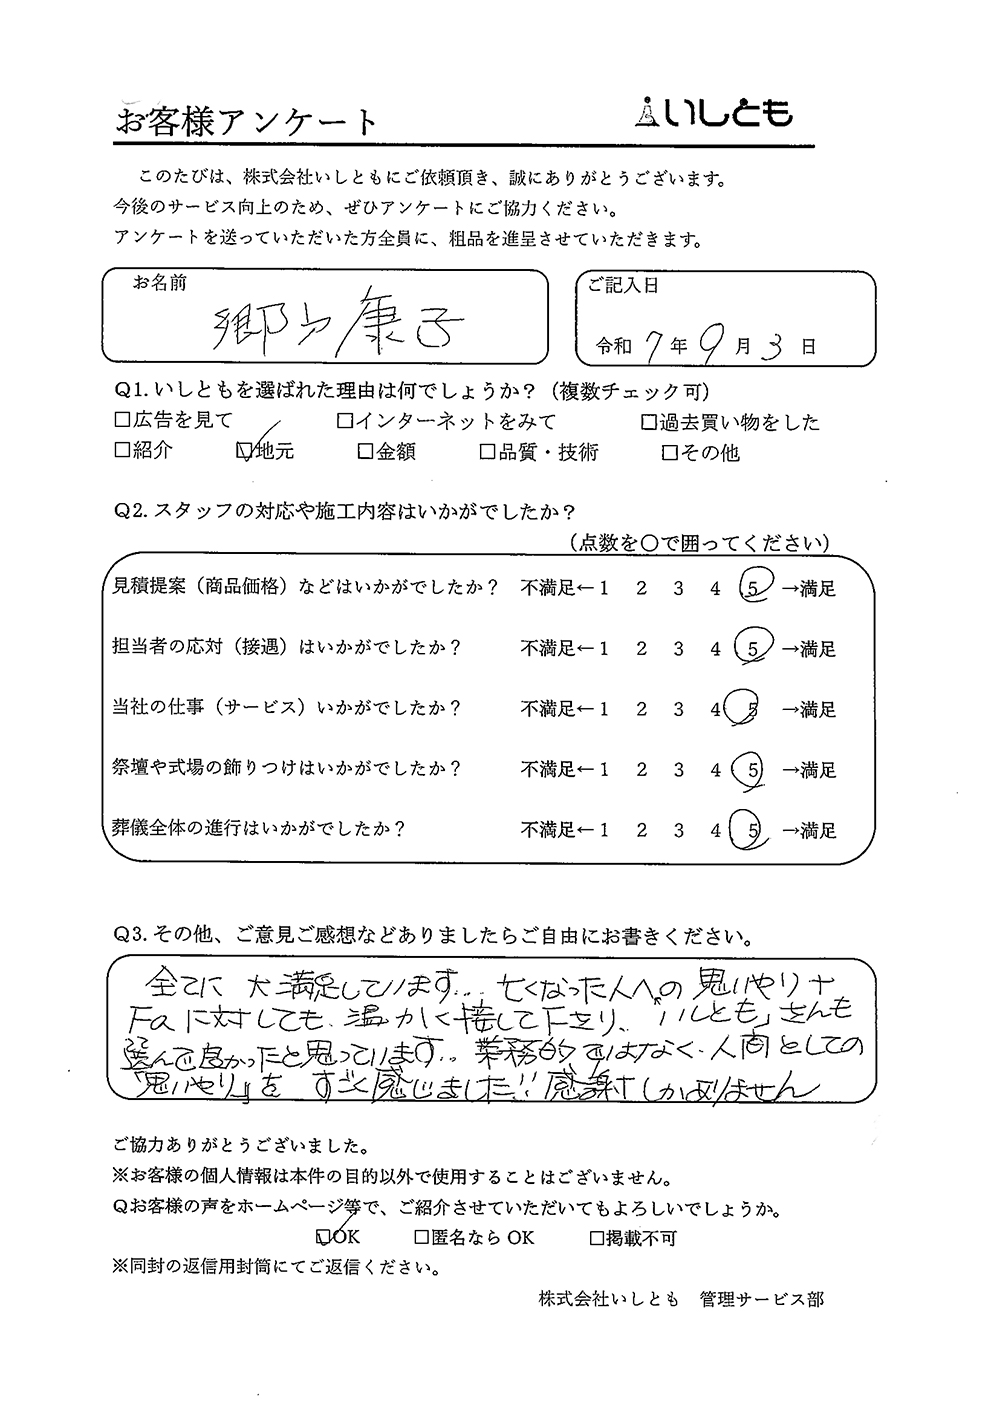 お客様アンケート
いしとも
このたびは、株式会社いしともにご依頼頂き、誠にありがとうございます。
今後のサービス向上のため、ぜひアンケートにご協力ください。
アンケートを送っていただいた方全員に、粗品を進呈させていただきます。
お名前
郷 康子
ご記入日
令和 7 年 9 月 3 日
Q1. いしともを選ばれた理由は何でしょうか？（複数チェック可）
□広告を見て □インターネットをみて □過去買い物をした
□紹介 ☑地元 □金額 □品質・技術 □その他
Q2. スタッフの対応や施工内容はいかがでしたか？
（点数を〇で囲ってください）
見積提案（商品価格）などはいかがでしたか？ 不満足←1 2 3 4 5 →満足
担当者の応対（接遇）はいかがでしたか？ 不満足←1 2 3 4 5 →満足
当社の仕事（サービス）いかがでしたか？ 不満足←1 2 3 4 5 →満足
祭壇や式場の飾りつけはいかがでしたか？ 不満足←1 2 3 4 5 →満足
葬儀全体の進行はいかがでしたか？ 不満足←1 2 3 4 5 →満足
Q3. その他、ご意見ご感想などありましたらご自由にお書きください。
全てに大満足しています... 亡くなった人への思いやり＋
Faに対しても、温かく接して下さり、「いしとも」さんも
選んで良かったと思っています.. 業務的ではなく、人間としての
「思いやり」を すごく感じました!! 感謝しかありません
ご協力ありがとうございました。
※お客様の個人情報は本件の目的以外で使用することはございません。
Qお客様の声をホームページ等で、ご紹介させていただいてもよろしいでしょうか。
☑OK □匿名なら OK □掲載不可
※同封の返信用封筒にてご返信ください。
株式会社いしとも 管理サービス部